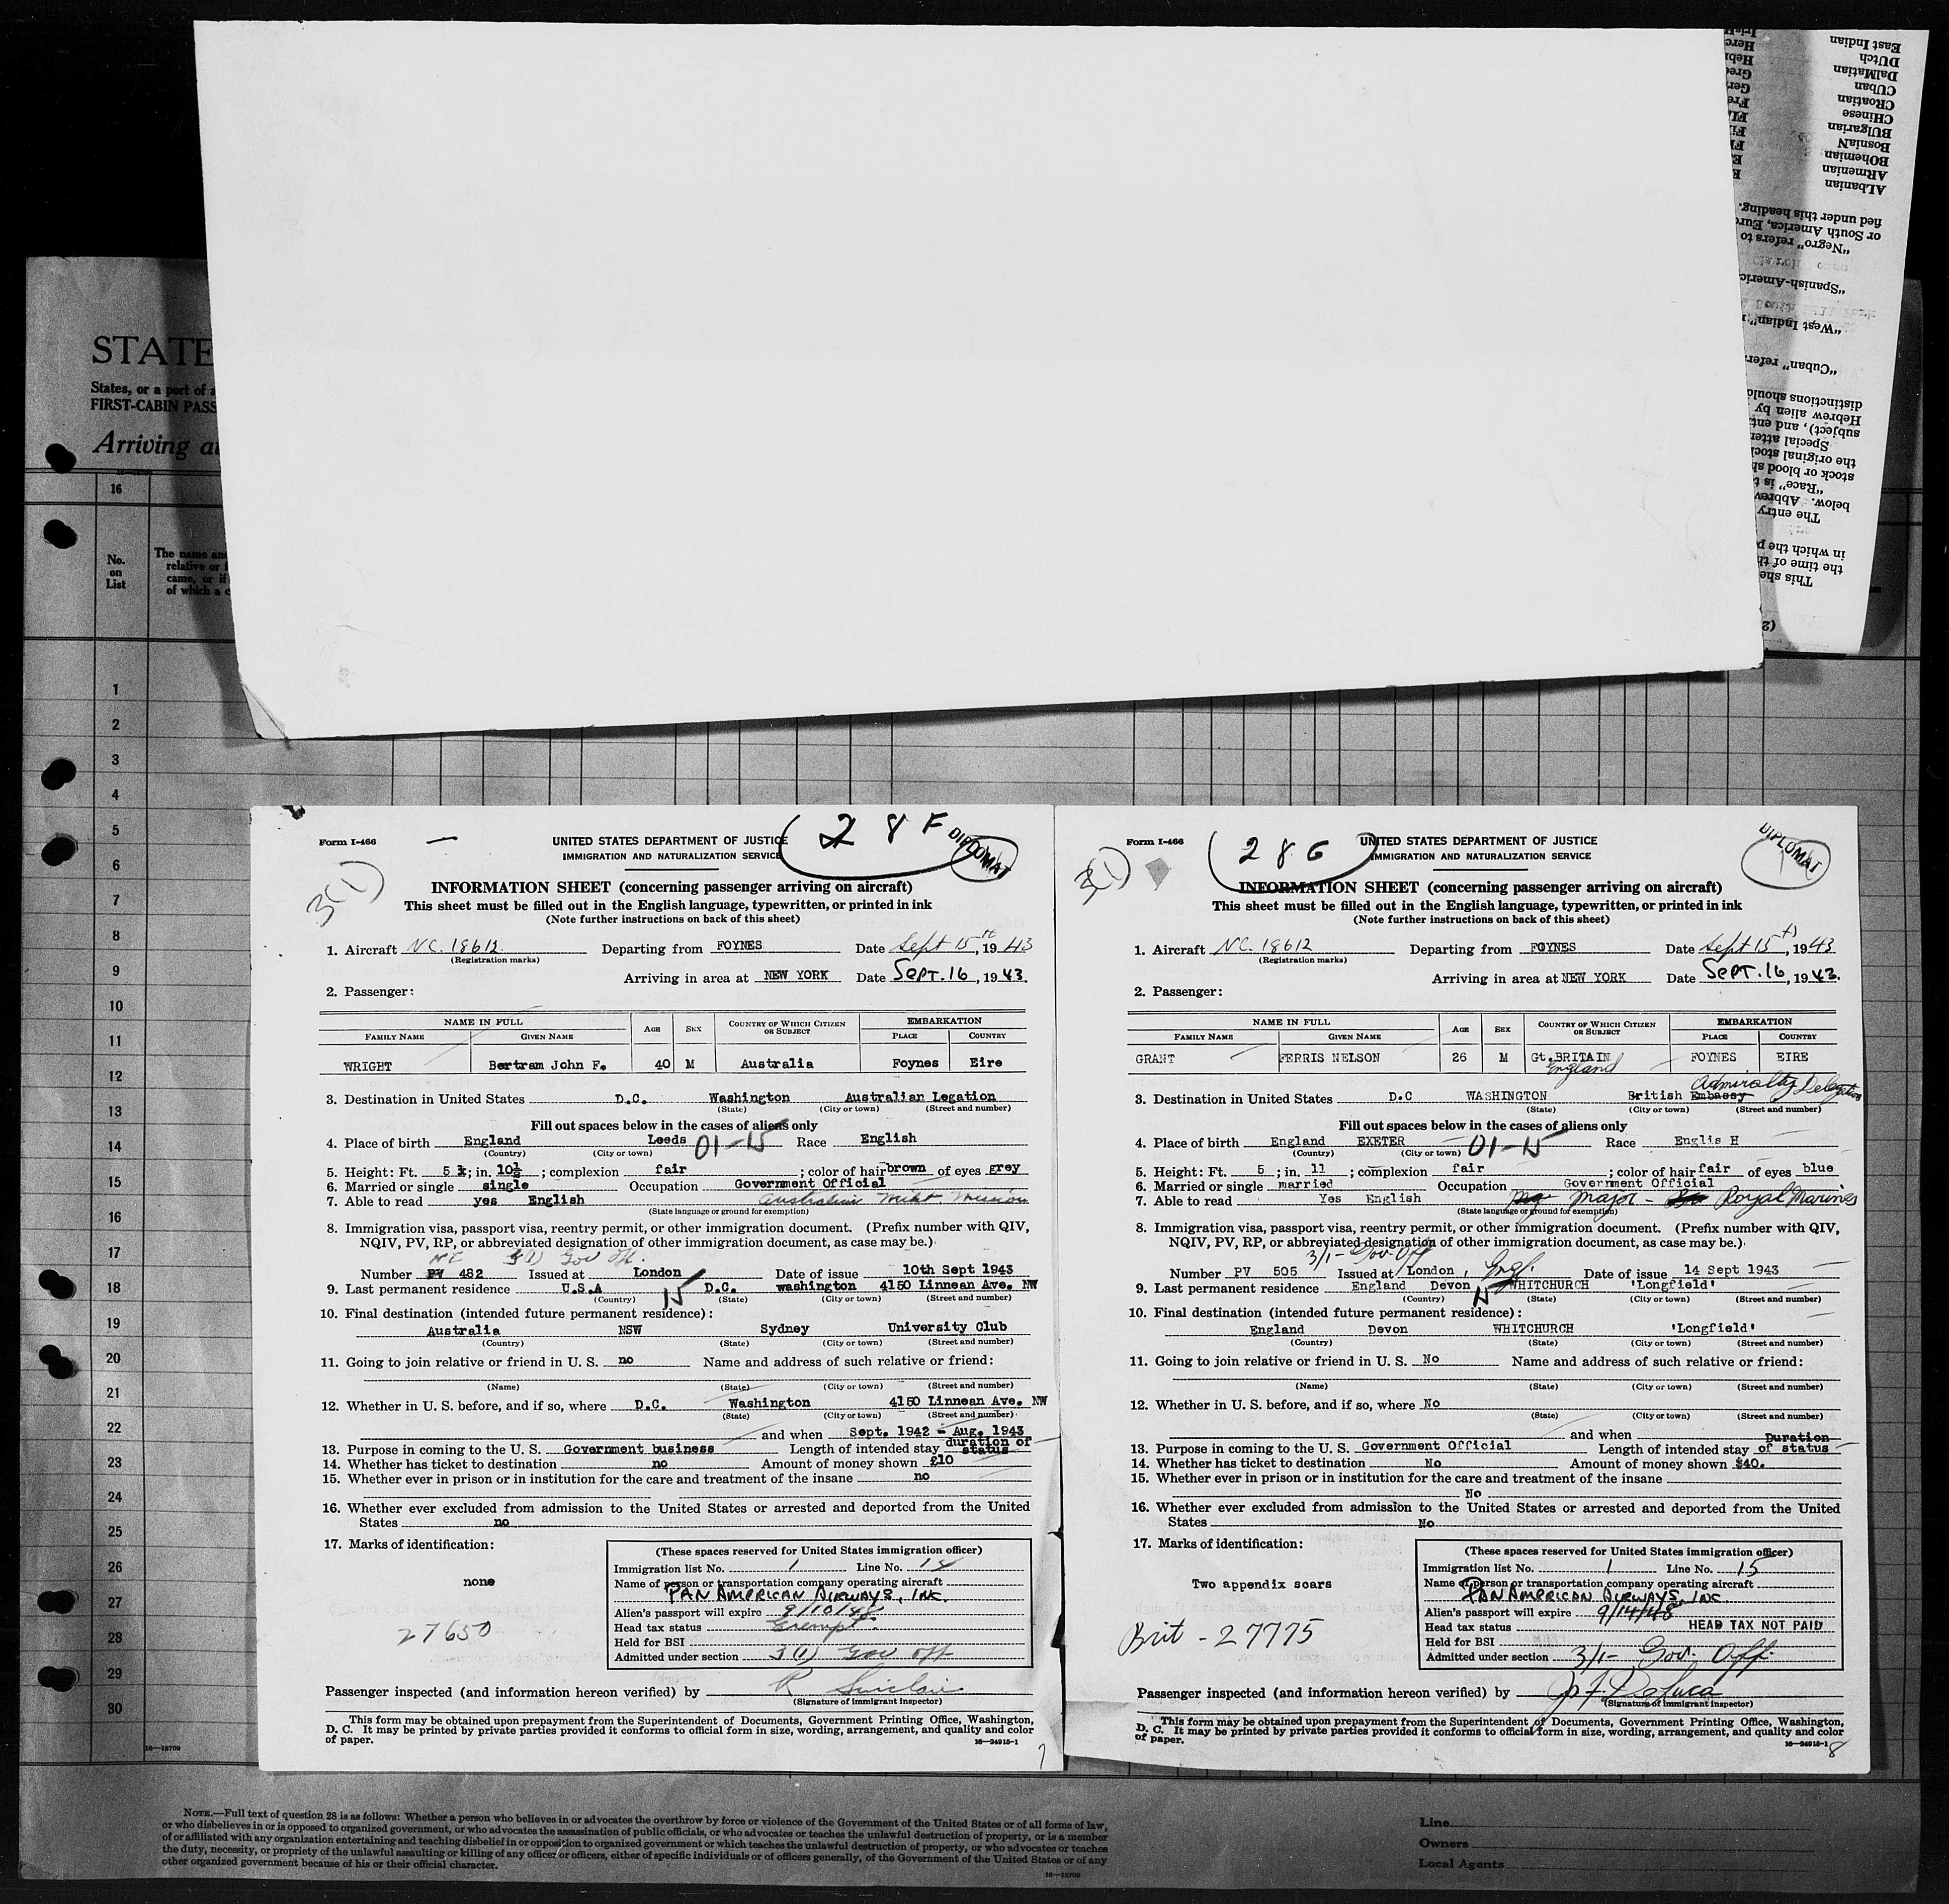 STATE
States, or a port of a
FIRST-CABIN PASS
Arriving at
16
No.
on
List
The name and
relative or f
came, or if
of which a c
1
2
3
4
5
6
7
8
9
10
11
12
13
14
15
16
17
18
19
20
21
22
23
24
25
26
27
28
29
30
16—18700
East Indian
DUtch
DalMatian
CUban
CRoatian
CHinese
BUlgarian
BosniaN
BOhemian
ARmenian
ALbanian
fied under this heading.
or South America, Euro
"Negro" refers to
"Spanish-Americ
"West Indian"
"Cuban" refer
distinctions shoul
Hebrew alien by
subject), and ent
Special atten
the original stoc
stock or blood sh
"Race" is t
below. Abbrev
The entry
in which the p
the time of th
This she
Form I-466
28F
DIPLOMAT
3(1)
UNITED STATES DEPARTMENT OF JUSTICE
IMMIGRATION AND NATURALIZATION SERVICE
INFORMATION SHEET (concerning passenger arriving on aircraft)
This sheet must be filled out in the English language, typewritten, or printed in ink
(Note further instructions on back of this sheet)
1. Aircraft NC. 18612 Departing from FOYNES Date Sept 15th, 1943
(Registration marks)
Arriving in area at NEW YORK Date SEPT. 16, 1943.
2. Passenger:
NAME IN FULL AGE SEX COUNTRY OF WHICH CITIZEN OR SUBJECT EMBARKATION
FAMILY NAME GIVEN NAME PLACE COUNTRY
WRIGHT Bertram John F. 40 M Australia Foynes Eire
3. Destination in United States D.C. Washington Australian Legation
(State) (City or town) (Street and number)
Fill out spaces below in the cases of aliens only
4. Place of birth England Leeds 01-15 Race English
(Country) (City or town)
5. Height: Ft. 5; in. 10½; complexion fair; color of hair brown of eyes grey
6. Married or single single Occupation Government Official
7. Able to read yes English Australian Milt. Mission
(State language or ground for exemption)
8. Immigration visa, passport visa, reentry permit, or other immigration document. (Prefix number with QIV,
NQIV, PV, RP, or abbreviated designation of other immigration document, as case may be.)
3(1) Gov off.
Number PV 482 Issued at London Date of issue 10th Sept 1943
9. Last permanent residence U.S.A 15 D.C. washington 4150 Linnean Ave. NW
(Country) (State) (City or town) (Street and number)
10. Final destination (intended future permanent residence):
Australia NSW Sydney University Club
(Country) (State) (City or town) (Street and number)
11. Going to join relative or friend in U. S. no Name and address of such relative or friend:
(Name) (State) (City or town) (Street and number)
12. Whether in U. S. before, and if so, where D.C. Washington 4150 Linnean Ave. NW
(State) (City or town) (Street and number)
and when Sept. 1942 - Aug. 1943
13. Purpose in coming to the U. S. Government business Length of intended stay duration of status
14. Whether has ticket to destination no Amount of money shown £10
15. Whether ever in prison or in institution for the care and treatment of the insane no
16. Whether ever excluded from admission to the United States or arrested and deported from the United
States no
17. Marks of identification:
none
27650
(These spaces reserved for United States immigration officer)
Immigration list No. 1 Line No. 14
Name of person or transportation company operating aircraft
PAN AMERICAN AIRWAYS, INC.
Alien's passport will expire 9/10/48
Head tax status Exempt.
Held for BSI
Admitted under section 3(1) Gov off
Passenger inspected (and information hereon verified) by R Sinclair
(Signature of immigrant inspector)
This form may be obtained upon prepayment from the Superintendent of Documents, Government Printing Office, Washington,
D. C. It may be printed by private parties provided it conforms to official form in size, wording, arrangement, and quality and color
of paper.
16—24915-1
7
Form I-466
28G
DIPLOMAT
3(1)
UNITED STATES DEPARTMENT OF JUSTICE
IMMIGRATION AND NATURALIZATION SERVICE
INFORMATION SHEET (concerning passenger arriving on aircraft)
This sheet must be filled out in the English language, typewritten, or printed in ink
(Note further instructions on back of this sheet)
1. Aircraft NC. 18612 Departing from FOYNES Date Sept 15th, 1943
(Registration marks)
Arriving in area at NEW YORK Date SEPT. 16, 1943.
2. Passenger:
NAME IN FULL AGE SEX COUNTRY OF WHICH CITIZEN OR SUBJECT EMBARKATION
FAMILY NAME GIVEN NAME PLACE COUNTRY
GRANT FERRIS NELSON 26 M Gt.BRITAIN FOYNES EIRE
England
Admiralty Delegation
3. Destination in United States D.C WASHINGTON British Embassy
(State) (City or town) (Street and number)
Fill out spaces below in the cases of aliens only
4. Place of birth England EXETER 01-15 Race Englis H
(Country) (City or town)
5. Height: Ft. 5; in. 11; complexion fair; color of hair fair of eyes blue
6. Married or single married Occupation Government Official
7. Able to read Yes English Major - Royal Marines
(State language or ground for exemption)
8. Immigration visa, passport visa, reentry permit, or other immigration document. (Prefix number with QIV,
NQIV, PV, RP, or abbreviated designation of other immigration document, as case may be.)
3/1- Gov Off
Number PV 505 Issued at London, Engl. Date of issue 14 Sept 1943
9. Last permanent residence England Devon 15 WHITCHURCH 'Longfield'
(Country) (State) (City or town) (Street and number)
10. Final destination (intended future permanent residence):
England Devon WHITCHURCH 'Longfield'
(Country) (State) (City or town) (Street and number)
11. Going to join relative or friend in U. S. No Name and address of such relative or friend:
(Name) (State) (City or town) (Street and number)
12. Whether in U. S. before, and if so, where No
(State) (City or town) (Street and number)
and when
13. Purpose in coming to the U. S. Government Official Length of intended stay Duration of status
14. Whether has ticket to destination No Amount of money shown $40.
15. Whether ever in prison or in institution for the care and treatment of the insane
No
16. Whether ever excluded from admission to the United States or arrested and deported from the United
States No
17. Marks of identification:
Two appendix scars
Brit - 27775
(These spaces reserved for United States immigration officer)
Immigration list No. 1 Line No. 15
Name of person or transportation company operating aircraft
PAN AMERICAN AIRWAYS, INC.
Alien's passport will expire 9/14/48
Head tax status HEAD TAX NOT PAID
Held for BSI
Admitted under section 3/1- Gov. Off.
Passenger inspected (and information hereon verified) by J. F. DeLuca
(Signature of immigrant inspector)
This form may be obtained upon prepayment from the Superintendent of Documents, Government Printing Office, Washington,
D. C. It may be printed by private parties provided it conforms to official form in size, wording, arrangement, and quality and color
of paper.
16—24915-1
8
NOTE.—Full text of question 28 is as follows: Whether a person who believes in or advocates the overthrow by force or violence of the Government of the United States or of all forms of law,
or who disbelieves in or is opposed to organized government, or who advocates the assassination of public officials, or who advocates or teaches the unlawful destruction of property, or is a member
of or affiliated with any organization entertaining and teaching disbelief in or opposition to organized government or which teaches the unlawful destruction of property, or who advocates or teaches
the duty, necessity, or propriety of the unlawful assaulting or killing of any officer or officers, either of specific individuals or of officers generally, of the Government of the United States or of any
other organized government because of his or their official character.
16—18700
Line
Owners
Local Agents